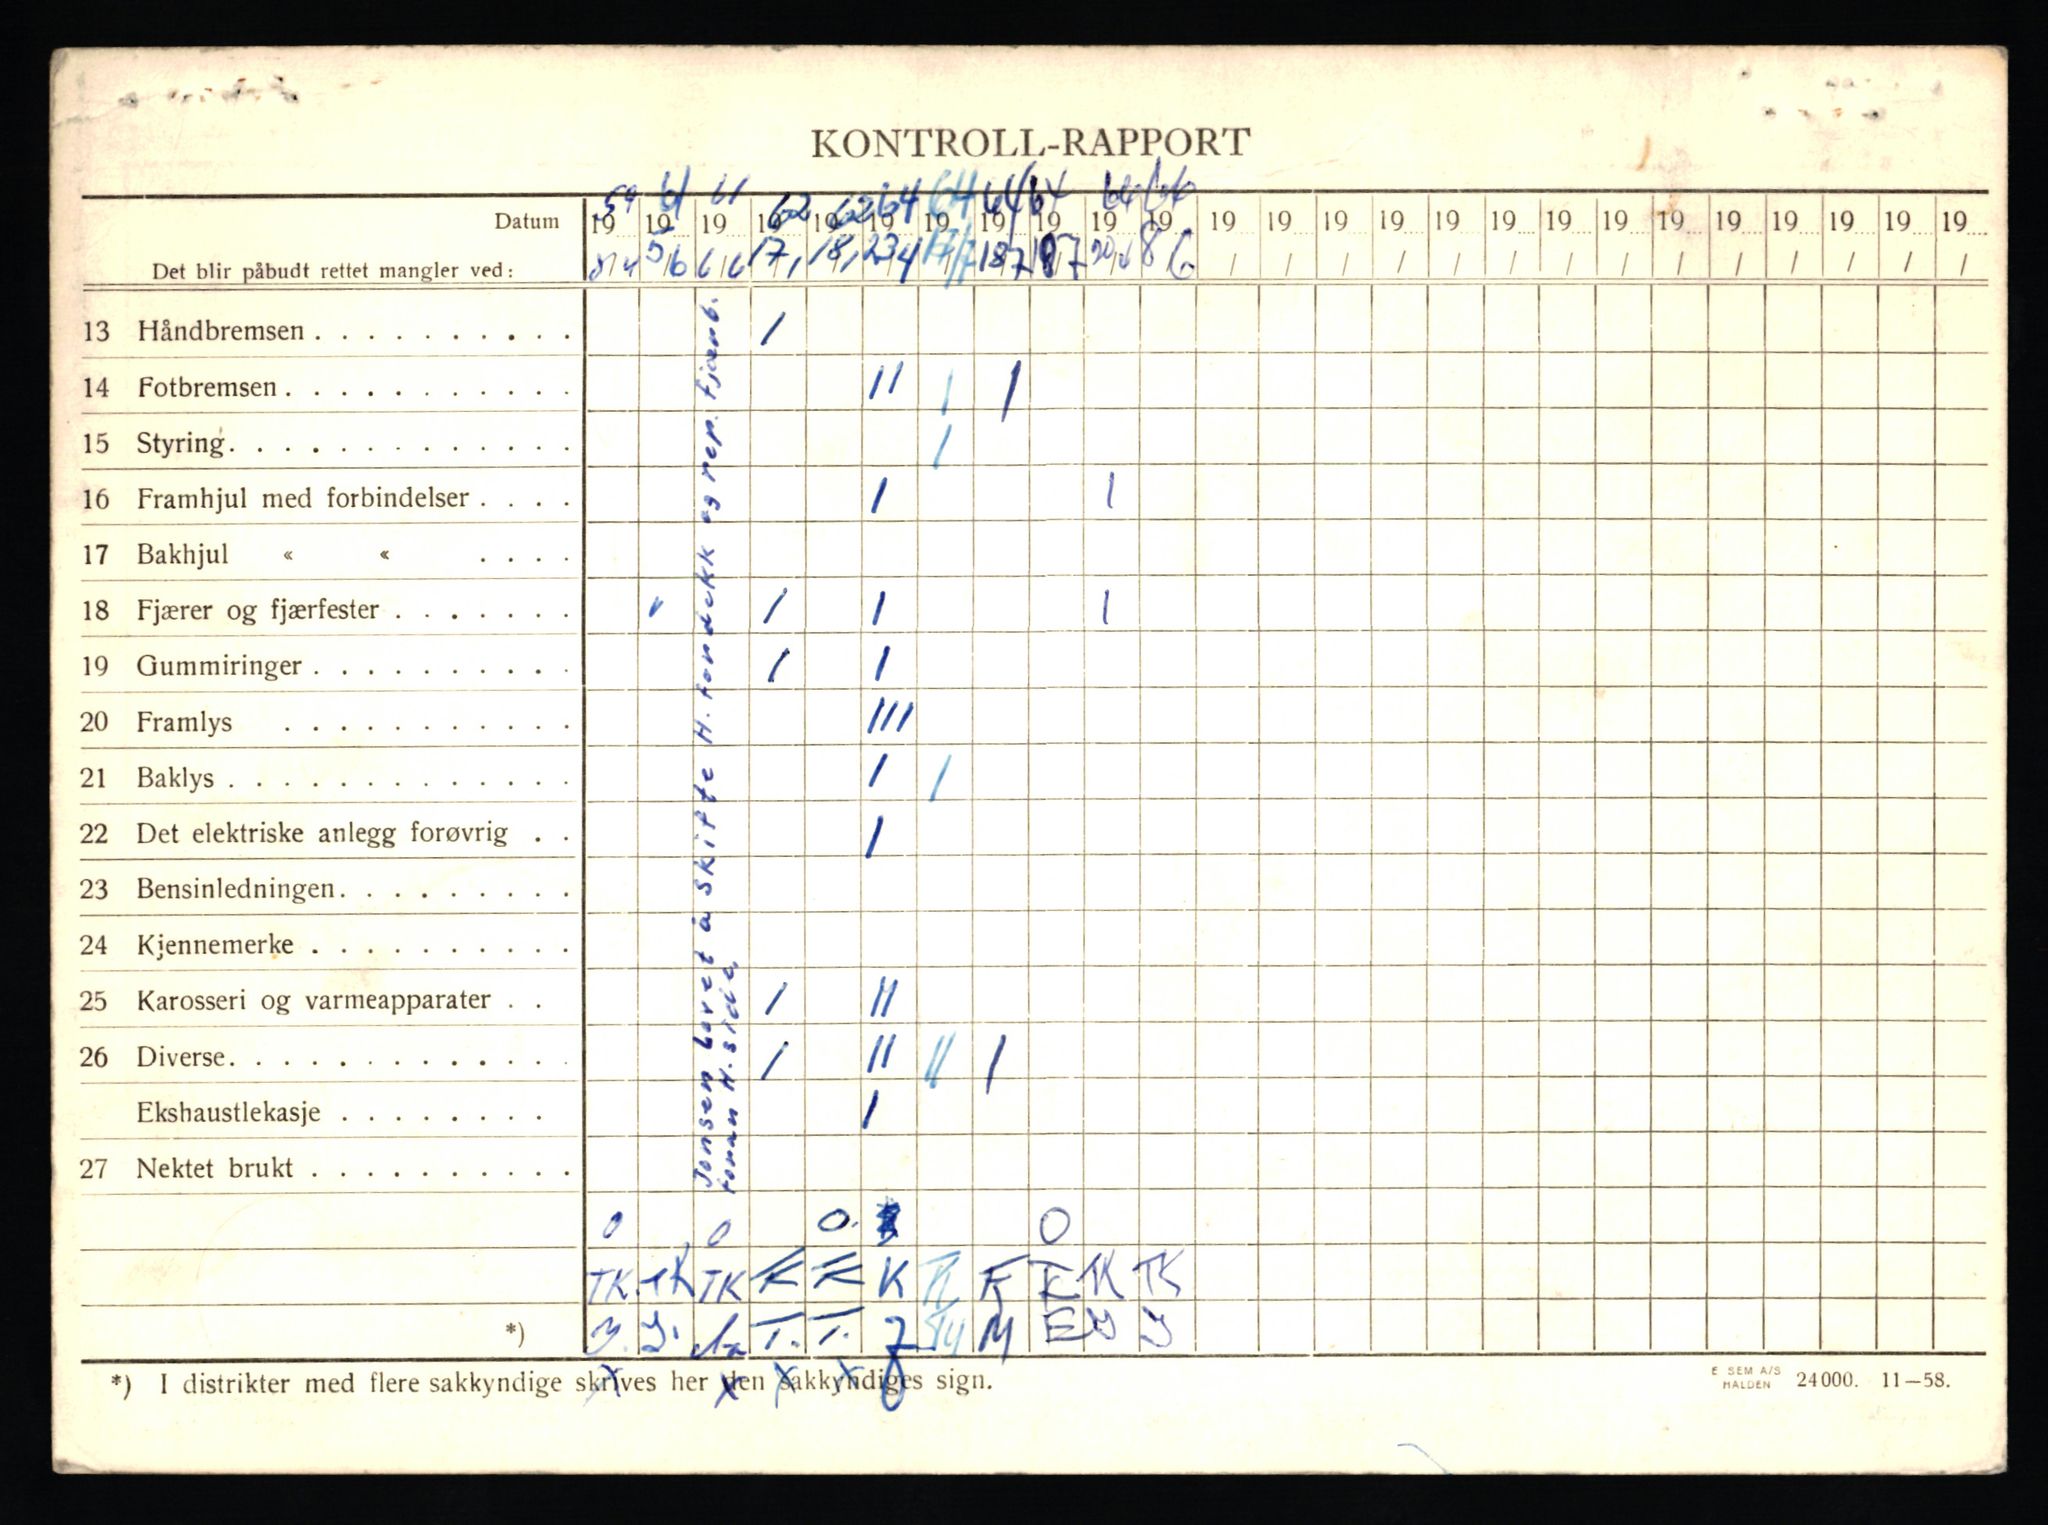 KONTROLL-RAPPORT
Datum 19 59 19 61 19 61 19 62 19 62 19 64 19 64 19 64 19 64 19 64 19 66 19 19 19 19 19 19 19 19 19 19 19 19 19 19
Det blir påbudt rettet mangler ved: 5/6 6/6 17, 18, 23 4 17/7 18 7 8 6 / / / / / / / / / / / / / /
13 Håndbremsen . . . . . . . . . . /
14 Fotbremsen . . . . . . . . . . . // / /
15 Styring . . . . . . . . . . . . . /
16 Framhjul med forbindelser . . . . / /
17 Bakhjul « « . . . .
18 Fjærer og fjærfester . . . . . . . / / / /
19 Gummiringer . . . . . . . . . . / /
20 Framlys . . . . . . . . . . . ///
21 Baklys . . . . . . . . . . . . . / /
22 Det elektriske anlegg forøvrig . . /
23 Bensinledningen . . . . . . . . .
24 Kjennemerke . . . . . . . . . .
25 Karosseri og varmeapparater . . / //
26 Diverse . . . . . . . . . . . . . / // // /
Ekshaustlekasje . . . . . . . . /
27 Nektet brukt . . . . . . . . . .
Jonsen lovet å skifte H. fordekk og rep. fjærb.
foran H. side.
0 0 0. 0
TK. TK TK K K K TK TK
*) T. T. M E
*) I distrikter med flere sakkyndige skrives her den sakkyndiges sign.
x x x x
E SEM A/S
HALDEN 24000. 11—58.